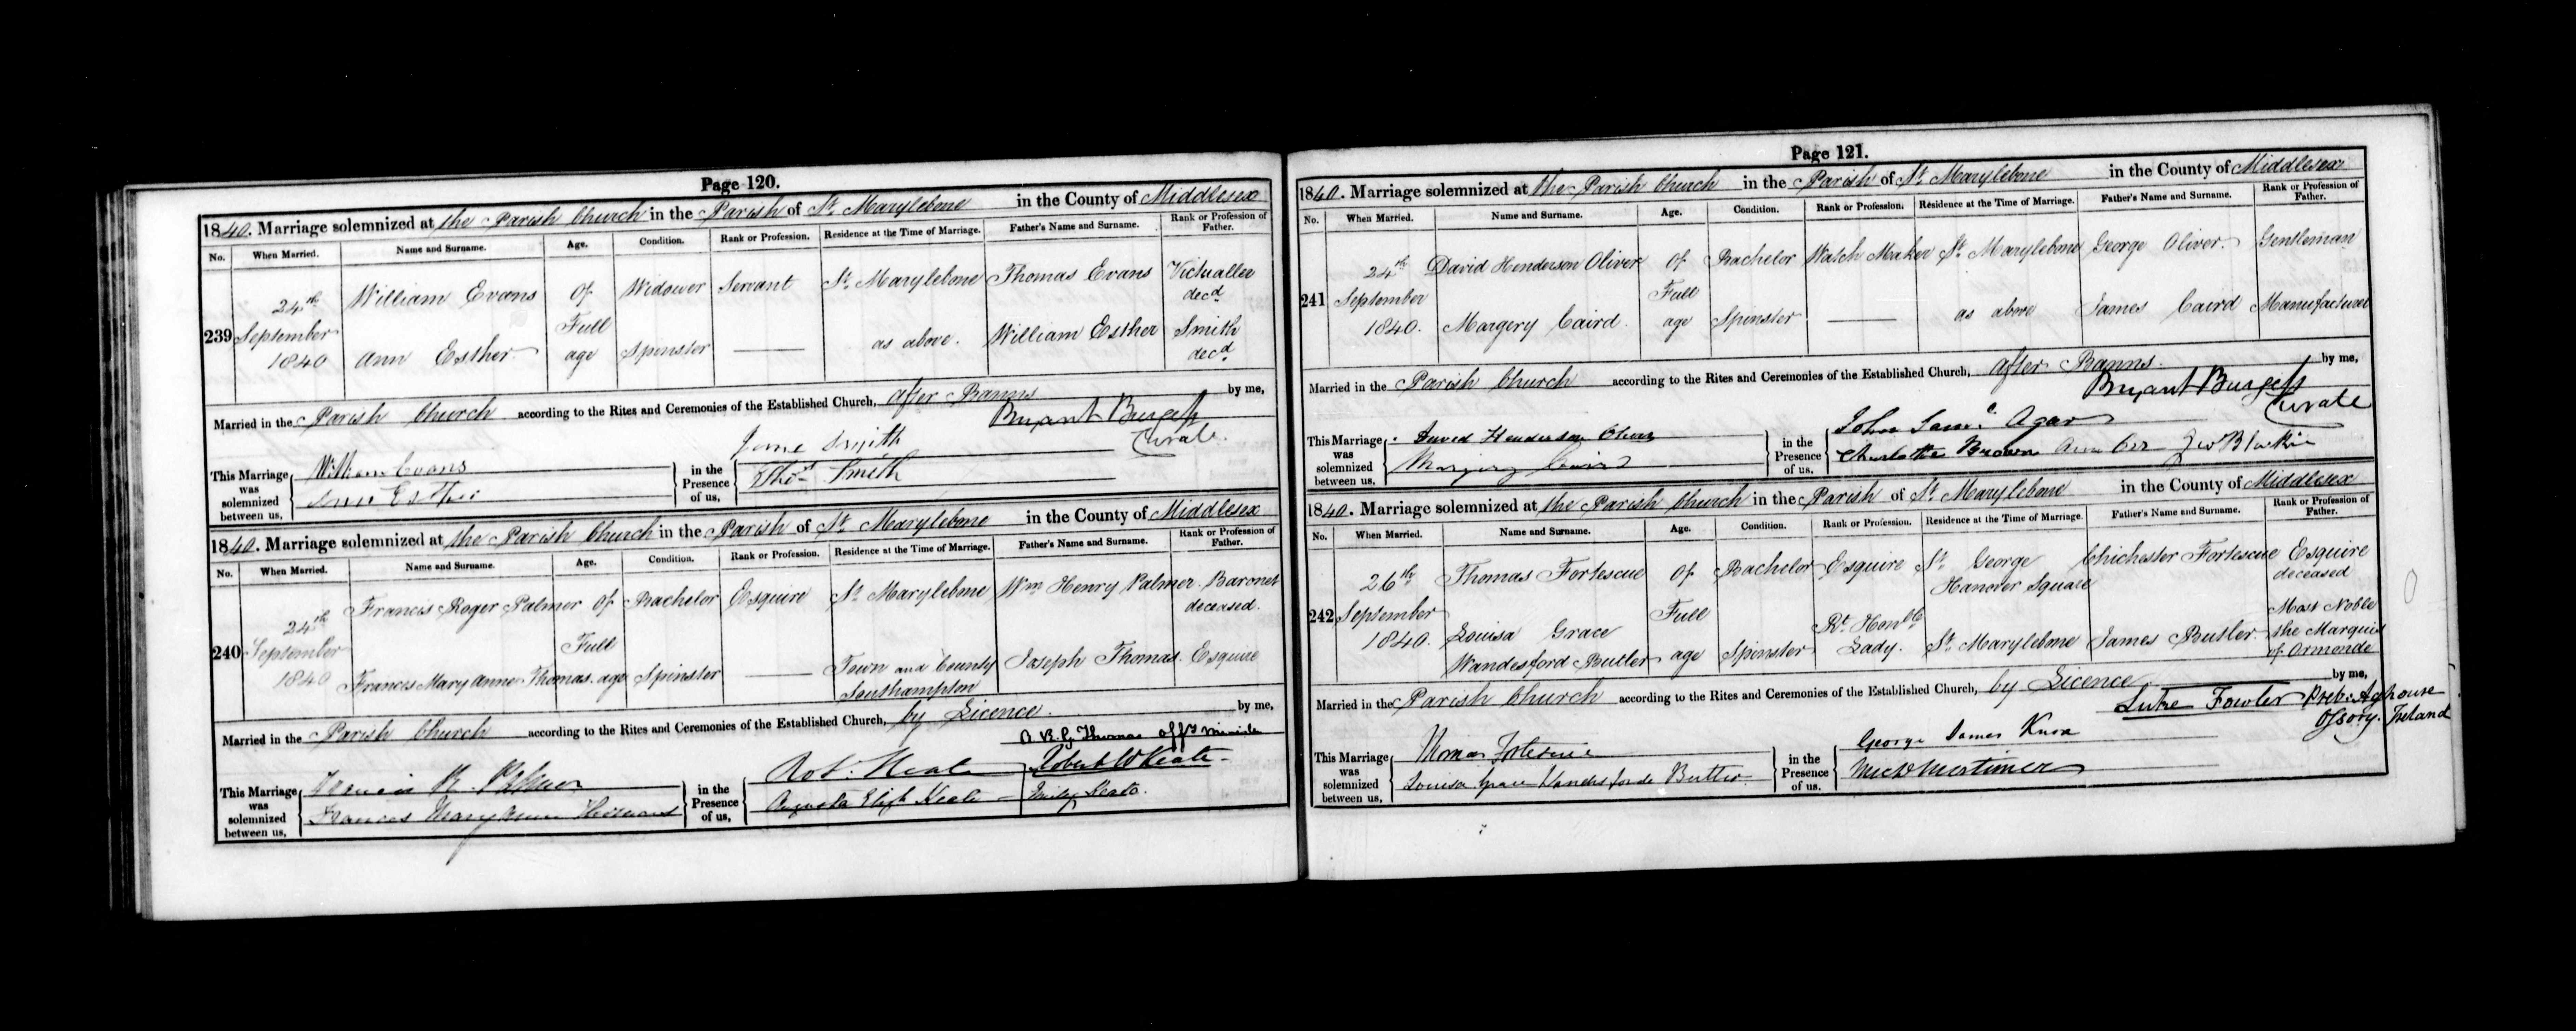 Page 120.
1840. Marriage solemnized at the Parish Church in the Parish of St. Marylebone in the County of Middlesex
No. When Married. Name and Surname. Age. Condition. Rank or Profession. Residence at the Time of Marriage. Father's Name and Surname. Rank or Profession of Father.
239 24th September 1840 William Evans Of Full age Widower Servant St. Marylebone Thomas Evans Victualler decd.
Ann Esther Spinster as above. William Esther Smith decd.
Married in the Parish Church according to the Rites and Ceremonies of the Established Church, after Banns by me,
Bryant Burgess
Curate.
This Marriage was solemnized between us, William Evans
Ann Esther
in the Presence of us, Jane Smith
Thos. Smith
1840. Marriage solemnized at the Parish Church in the Parish of St. Marylebone in the County of Middlesex
No. When Married. Name and Surname. Age. Condition. Rank or Profession. Residence at the Time of Marriage. Father's Name and Surname. Rank or Profession of Father.
240 24th September 1840 Francis Roger Palmer Of Full age Bachelor Esquire St. Marylebone Wm. Henry Palmer Baronet deceased.
Frances Mary Anne Thomas. Spinster Town and County Southampton Joseph Thomas. Esquire
Married in the Parish Church according to the Rites and Ceremonies of the Established Church, by Licence. by me,
Thomas Offg Minister
This Marriage was solemnized between us, Francis R. Palmer
Frances Mary Anne Thomas
in the Presence of us, Robt. Keate Robert W Keate
Augusta Elizh Keate Emily Keate.
Page 121.
1840. Marriage solemnized at the Parish Church in the Parish of St. Marylebone in the County of Middlesex
No. When Married. Name and Surname. Age. Condition. Rank or Profession. Residence at the Time of Marriage. Father's Name and Surname. Rank or Profession of Father.
241 24th September 1840. David Henderson Oliver Of Full age Bachelor Watch Maker St. Marylebone George Oliver. Gentleman
Margery Caird. Spinster as above James Caird Manufacturer
Married in the Parish Church according to the Rites and Ceremonies of the Established Church, after Banns. by me,
Bryant Burgess
Curate
This Marriage was solemnized between us, David Henderson Oliver
Margery Caird
in the Presence of us, John Saml. Agar
Charlotte Brown Ann Orr
1840. Marriage solemnized at the Parish Church in the Parish of St. Marylebone in the County of Middlesex
No. When Married. Name and Surname. Age. Condition. Rank or Profession. Residence at the Time of Marriage. Father's Name and Surname. Rank or Profession of Father.
242 26th September 1840. Thomas Fortescue Of Full age Bachelor Esquire St. George Hanover Square Chichester Fortescue Esquire deceased
Louisa Grace Wandesford Butler Spinster Rt. Honble Lady. St. Marylebone James Butler Most Noble the Marquis of Ormonde
Married in the Parish Church according to the Rites and Ceremonies of the Established Church, by Licence by me,
Luke Fowler Preb: Aghoure
Ossory. Ireland
This Marriage was solemnized between us, Thomas Fortescue
Louisa Grace Wandesforde Butler
in the Presence of us, George James Knox